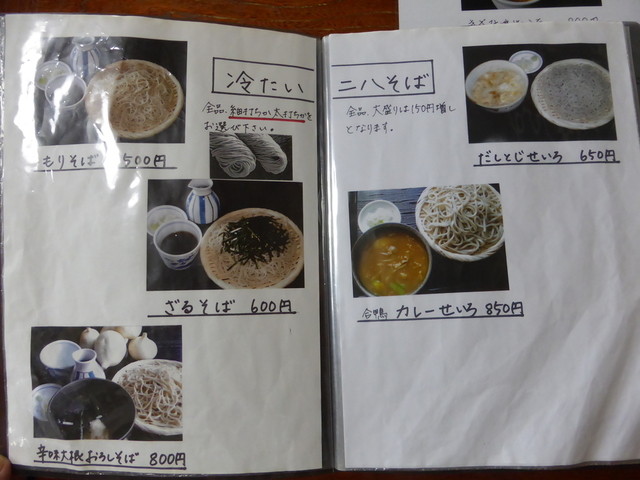 冷たい
全品、細打ちか太打ちかを
お選び下さい。
もりそば 500円
ざるそば 600円
辛味大根おろしそば 800円
二八そば
全品、大盛りは150円増し
となります。
だしとじせいろ 650円
合鴨 カレーせいろ 850円